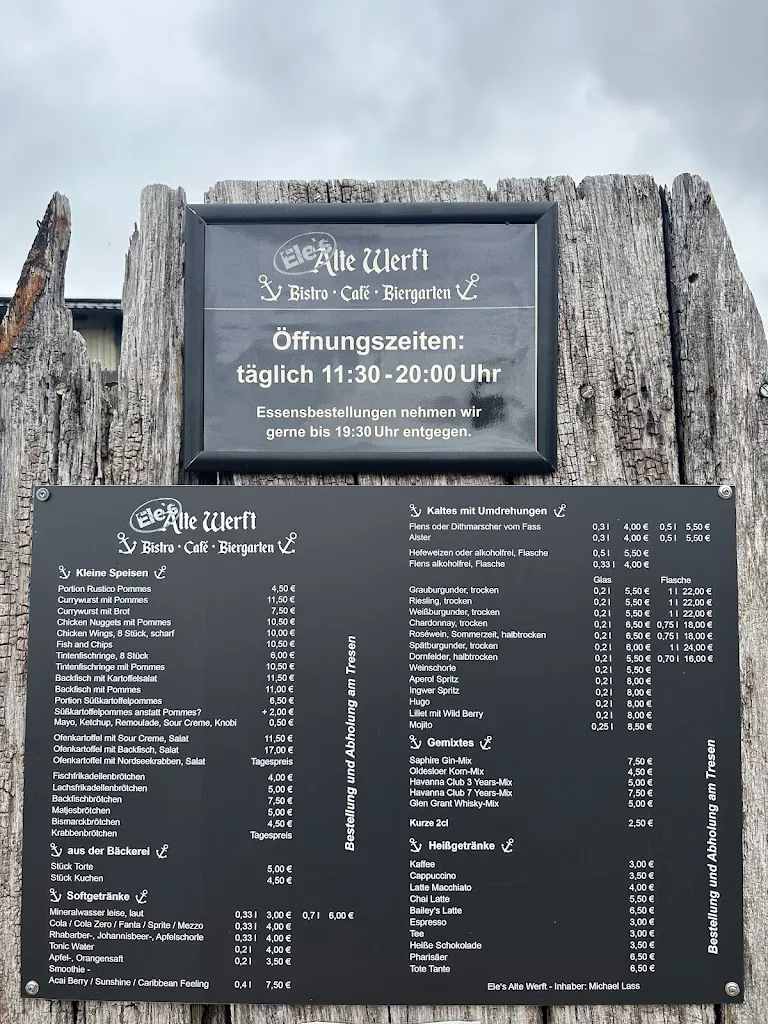 Ele's Alte Werft
Bistro · Café · Biergarten
Öffnungszeiten:
täglich 11:30 - 20:00 Uhr
Essensbestellungen nehmen wir
gerne bis 19:30 Uhr entgegen.
Ele's Alte Werft
Bistro · Café · Biergarten
Kleine Speisen
Portion Rustico Pommes 4,50 €
Currywurst mit Pommes 11,50 €
Currywurst mit Brot 7,50 €
Chicken Nuggets mit Pommes 10,50 €
Chicken Wings, 8 Stück, scharf 10,00 €
Fish and Chips 10,50 €
Tintenfischringe, 8 Stück 6,00 €
Tintenfischringe mit Pommes 10,50 €
Backfisch mit Kartoffelsalat 11,50 €
Backfisch mit Pommes 11,00 €
Portion Süßkartoffelpommes 6,50 €
Süßkartoffelpommes anstatt Pommes? + 2,00 €
Mayo, Ketchup, Remoulade, Sour Creme, Knobi 0,50 €
Ofenkartoffel mit Sour Creme, Salat 11,50 €
Ofenkartoffel mit Backfisch, Salat 17,00 €
Ofenkartoffel mit Nordseekrabben, Salat Tagespreis
Fischfrikadellenbrötchen 4,00 €
Lachsfrikadellenbrötchen 5,00 €
Backfischbrötchen 7,50 €
Matjesbrötchen 5,00 €
Bismarckbrötchen 4,50 €
Krabbenbrötchen Tagespreis
aus der Bäckerei
Stück Torte 5,00 €
Stück Kuchen 4,50 €
Softgetränke
Mineralwasser leise, laut 0,33 l 3,00 € 0,7 l 6,00 €
Cola / Cola Zero / Fanta / Sprite / Mezzo 0,33 l 4,00 €
Rhabarber-, Johannisbeer-, Apfelschorle 0,33 l 4,00 €
Tonic Water 0,2 l 4,00 €
Apfel-, Orangensaft 0,2 l 3,50 €
Smoothie -
Acai Berry / Sunshine / Caribbean Feeling 0,4 l 7,50 €
Bestellung und Abholung am Tresen
Kaltes mit Umdrehungen
Flens oder Dithmarscher vom Fass 0,3 l 4,00 € 0,5 l 5,50 €
Alster 0,3 l 4,00 € 0,5 l 5,50 €
Hefeweizen oder alkoholfrei, Flasche 0,5 l 5,50 €
Flens alkoholfrei, Flasche 0,33 l 4,00 €
Glas Flasche
Grauburgunder, trocken 0,2 l 5,50 € 1 l 22,00 €
Riesling, trocken 0,2 l 5,50 € 1 l 22,00 €
Weißburgunder, trocken 0,2 l 5,50 € 1 l 22,00 €
Chardonnay, trocken 0,2 l 6,50 € 0,75 l 18,00 €
Roséwein, Sommerzeit, halbtrocken 0,2 l 6,50 € 0,75 l 18,00 €
Spätburgunder, trocken 0,2 l 6,00 € 1 l 24,00 €
Dornfelder, halbtrocken 0,2 l 5,50 € 0,70 l 16,00 €
Weinschorle 0,2 l 5,50 €
Aperol Spritz 0,2 l 8,00 €
Ingwer Spritz 0,2 l 8,00 €
Hugo 0,2 l 8,00 €
Lillet mit Wild Berry 0,2 l 8,00 €
Mojito 0,25 l 8,50 €
Gemixtes
Saphire Gin-Mix 7,50 €
Oldesloer Korn-Mix 4,50 €
Havanna Club 3 Years-Mix 5,00 €
Havanna Club 7 Years-Mix 7,50 €
Glen Grant Whisky-Mix 5,00 €
Kurze 2cl 2,50 €
Heißgetränke
Kaffee 3,00 €
Cappuccino 3,50 €
Latte Macchiato 4,00 €
Chai Latte 5,50 €
Bailey's Latte 6,50 €
Espresso 3,00 €
Tee 3,00 €
Heiße Schokolade 3,50 €
Pharisäer 6,50 €
Tote Tante 6,50 €
Bestellung und Abholung am Tresen
Ele's Alte Werft - Inhaber: Michael Lass